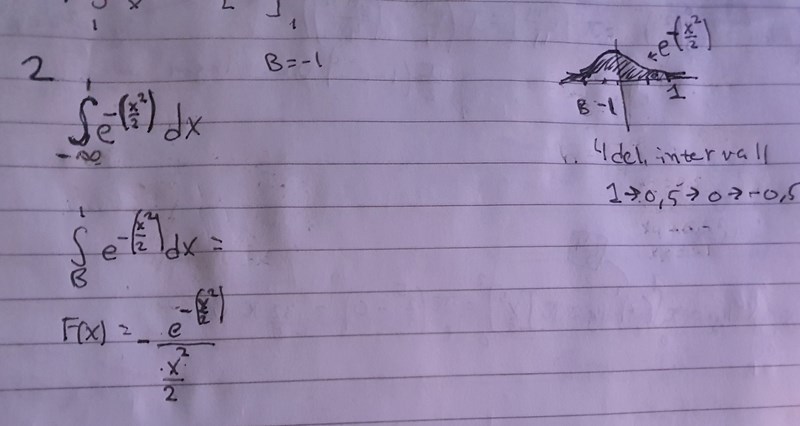 2
B = -1
∫₋∞¹ e^-(x²/2) dx
e^-(x²/2)
B -1 1
4 del. intervall
1 → 0,5 → 0 → -0,5
∫_B¹ e^-(x²/2) dx =
F(x) = - e^-(x²/2) / (x²/2)